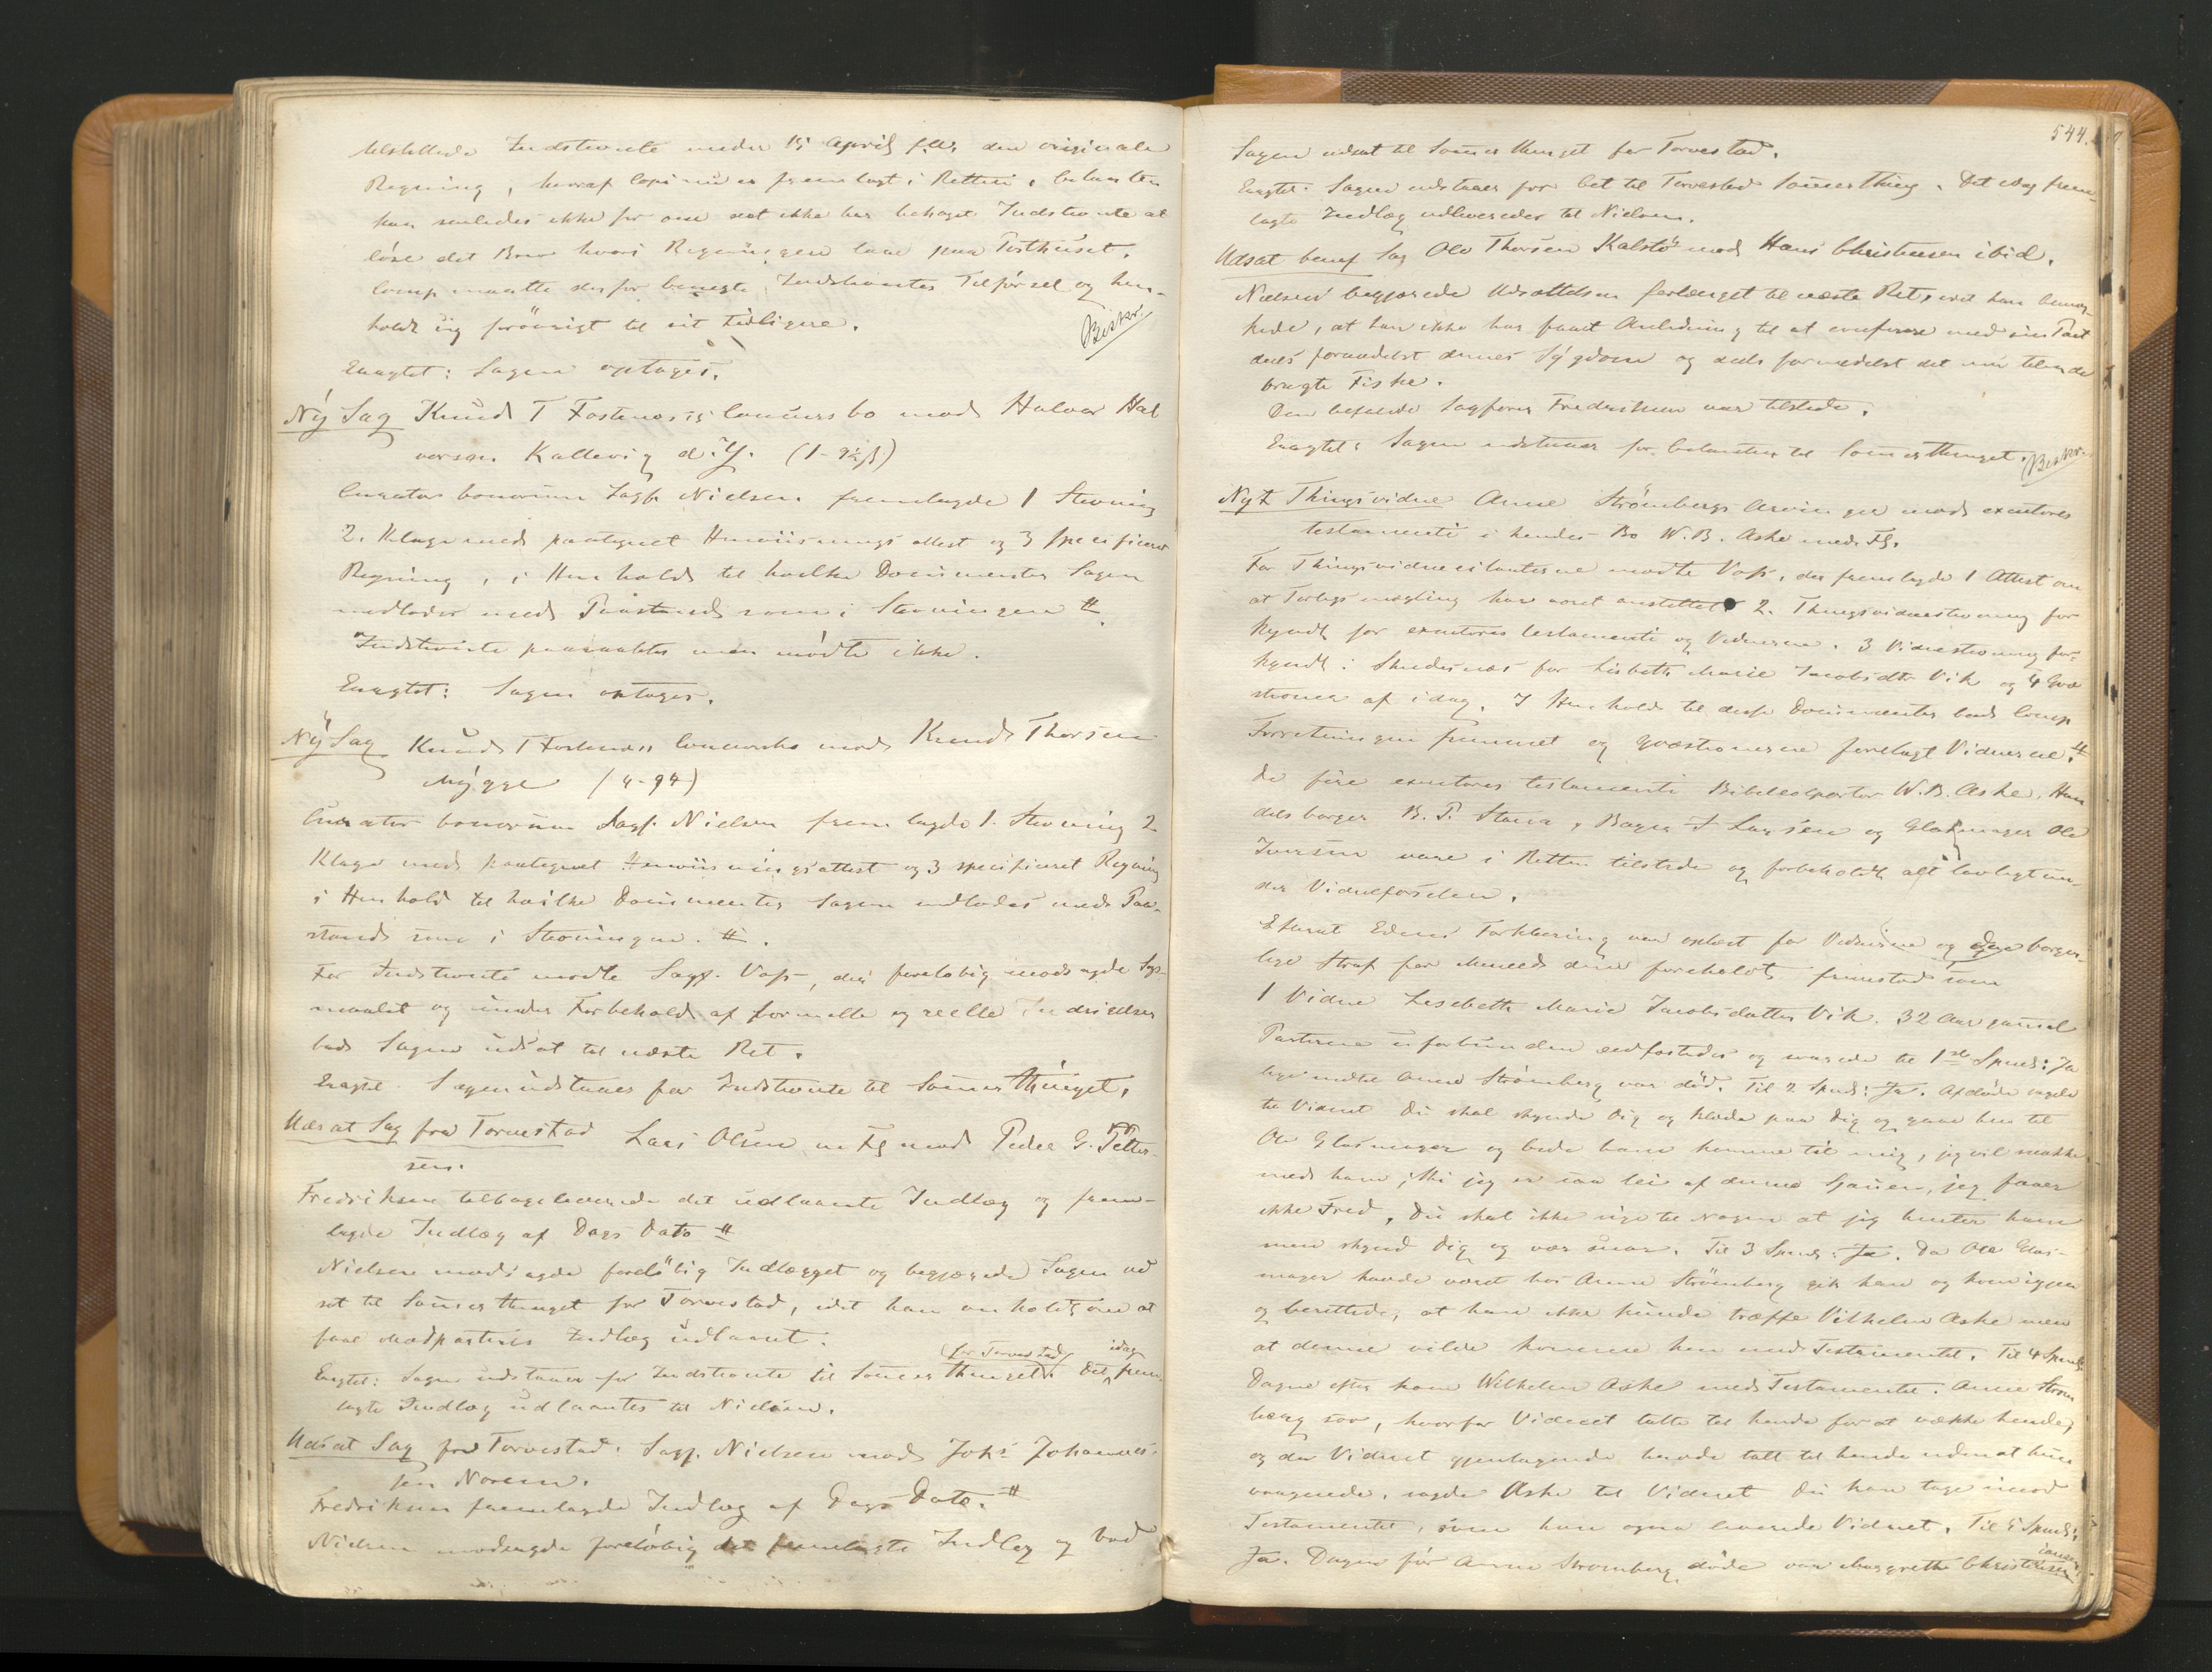 tilstillede Indstevnte under 15 April f.A. den originale
Regning, hvoraf Copi nu er fremlagt i Retten, betaleren
kan saaledes ikke for om det ikke har behaget Indstevnte at
løse det Brev hvori Regningen laae paa Posthuset.
Comp maatte derfor benegte Indstevntes Tilførsel og hen-
holdt sig forøvrigt til sit tidligere.
Beskr.
Eragtet: Sagen optages.
Ny Sag Knud T Fosenæs's Concursbo mod Halvor Hal
vorsen Kallevig d.Y.
Curator bonorum Sagf. Nielsen fremlagde 1 Stevning
2. Klage med paategnet Henviisnings attest og 3 specificeret
Regning, i Henhold til hvilke Documenter Sagen
indlodes med Paastand som i Stevningen #.
Indstevnte paaraabtes men mødte ikke.
Eragtet: Sagen optages.
Ny Sag Knud T Fosenæs's Concursbo mod Knud Thorsen
Mygge (4-94)
Curator bonorum Sagf. Nielsen fremlagde 1. Stevning 2
Klage med paategnet Henviisningsattest og 3 specificeret Regning
i Henhold til hvilke Documenter Sagen indlodes med Paa-
stand som i Stevningen. #.
For Indstevnte mødte Sagf. Voss, der foreløbig modsagde Søgs-
maalet og under Forbehold af formelle og reelle Indsigelser
bad Sagen udsat til næste Ret.
Eragtet. Sagen udstaaer for Indstevnte til Sommerthinget.
Udsat Sag fra Torvestad Lars Olsen m Fl mod Peder G. Petter-
sen.
Fredriksen tilbageleverede det udlaante Indlæg og frem-
lagde Indlæg af Dags Dato #
Nielsen modsagde foreløbig Indlægget og begjærede Sagen ud
sat til Sommerthinget for Torvestad, idet han anholdt om at
faae Modpartens Indlæg udlaant.
Eragtet: Sagen udstaaer for Indstevnte til Sommerthinget (for Torvestad). Det idag frem-
lagte Indlæg udlaantes til Nielsen.
Udsat Sag fra Torvestad: Sagf. Nielsen mod Johs Johannes-
sen Norem.
Fredriksen fremlagde Indlæg af Dags Dato. #
Nielsen modsagde foreløbig det fremlagte Indlæg og bad
544.
Sagen udsat til Sommerthinget for Torvestad.
Eragtet: Sagen udstaaer for Cit til Torvestad Sommerthing. Det idag frem-
lagte Indlæg udleveredes til Nielsen.
Udsat benef Sag Ole Thorsen Kalstø mod Hans Christensen ibid.
Nielsen begjærede Udsættelsen forlænget til næste Ret, idet han bemær-
kede, at han ikke har faaet Anledning til at conferere med sin Part
deels formedelst dennes Sygdom og deels formedelst det nu tilende
bragte Fiske.
Den befalede Sagfører Fredriksen var tilstede.
Eragtet: Sagen udstaaer for Citanten til Sommerthinget.
Beskr.
Nyt Thingsvidne Anne Strømbergs Arvinger mod executores
testamenti i hendes Bo W. B. Aske med Fl.
For Thingsvidnecitanterne mødte Voss, der fremlagde 1 Attest om
at Forligsmægling har været anstillet 2. Thingsvidnestevning for-
kyndt for executores testamenti og Vidnerne. 3 Vidnestevning for-
kyndt i Skudesnæs for Lisbeth Marie Jacobsdtr Vik og 4 Qvæ
stioner af idag. I Henhold til disse Documenter bad Comp
Forretningen fremmet og Qvæstionerne forelagt Vidnerne. #
De fire executores testamenti Bibelcolportør W. B. Aske, Han
delsborger B. P. Stava, Bager J Larsen og Glasmager Ole
Iversen vare i Retten tilstede og forbeholdt alt lovligt un-
der Vidneførselen.
Efterat Edens Forklaring var oplæst for Vidnerne og den borger-
lige Straf for Meneed dem foreholdt, fremstod som
1 Vidne Lisebeth Marie Jacobsdatter Vik. 32 Aar gammel
Parterne uforbunden eedfæstedes og svarede til 1ste Spmd: Ja
lige indtil Anne Strømberg var død. Til 2 Spmd: Ja. Afdøde sagde
til Vidnet Du skal skynde dig og klæde paa dig og gaae hen til
Ole Glasmager og bede ham komme til mig, jeg vil snakke
med ham; thi jeg er saa lei af denne Sjauen, jeg faaer
ikke Fred, Du skal ikke sige til Nogen at jeg henter ham
men skynd dig og vær snar. Til 3 Spmd: Ja. Da Ole Glas-
mager havde været hos Anne Strömberg gik han og kom igjen
og berettede, at han ikke kunde træffe Vilhelm Aske men
at denne vilde komme hen med Testamentet. Til 4 Spmd:
Dagen efter kom Wilhelm Aske med Testamentet. Anne Strøm
berg sov, hvorfor Vidnet talte til hende for at vække hende,
og da Vidnet gjentagende havde talt til hende uden at hun
vaagnede, sagde Aske til Vidnet Du kan tage imod
Testamentet, som han ogsaa leverede Vidnet. Til 5 Spmd:
Ja. Dagen før Anne Stromberg døde var Margrethe Christensen